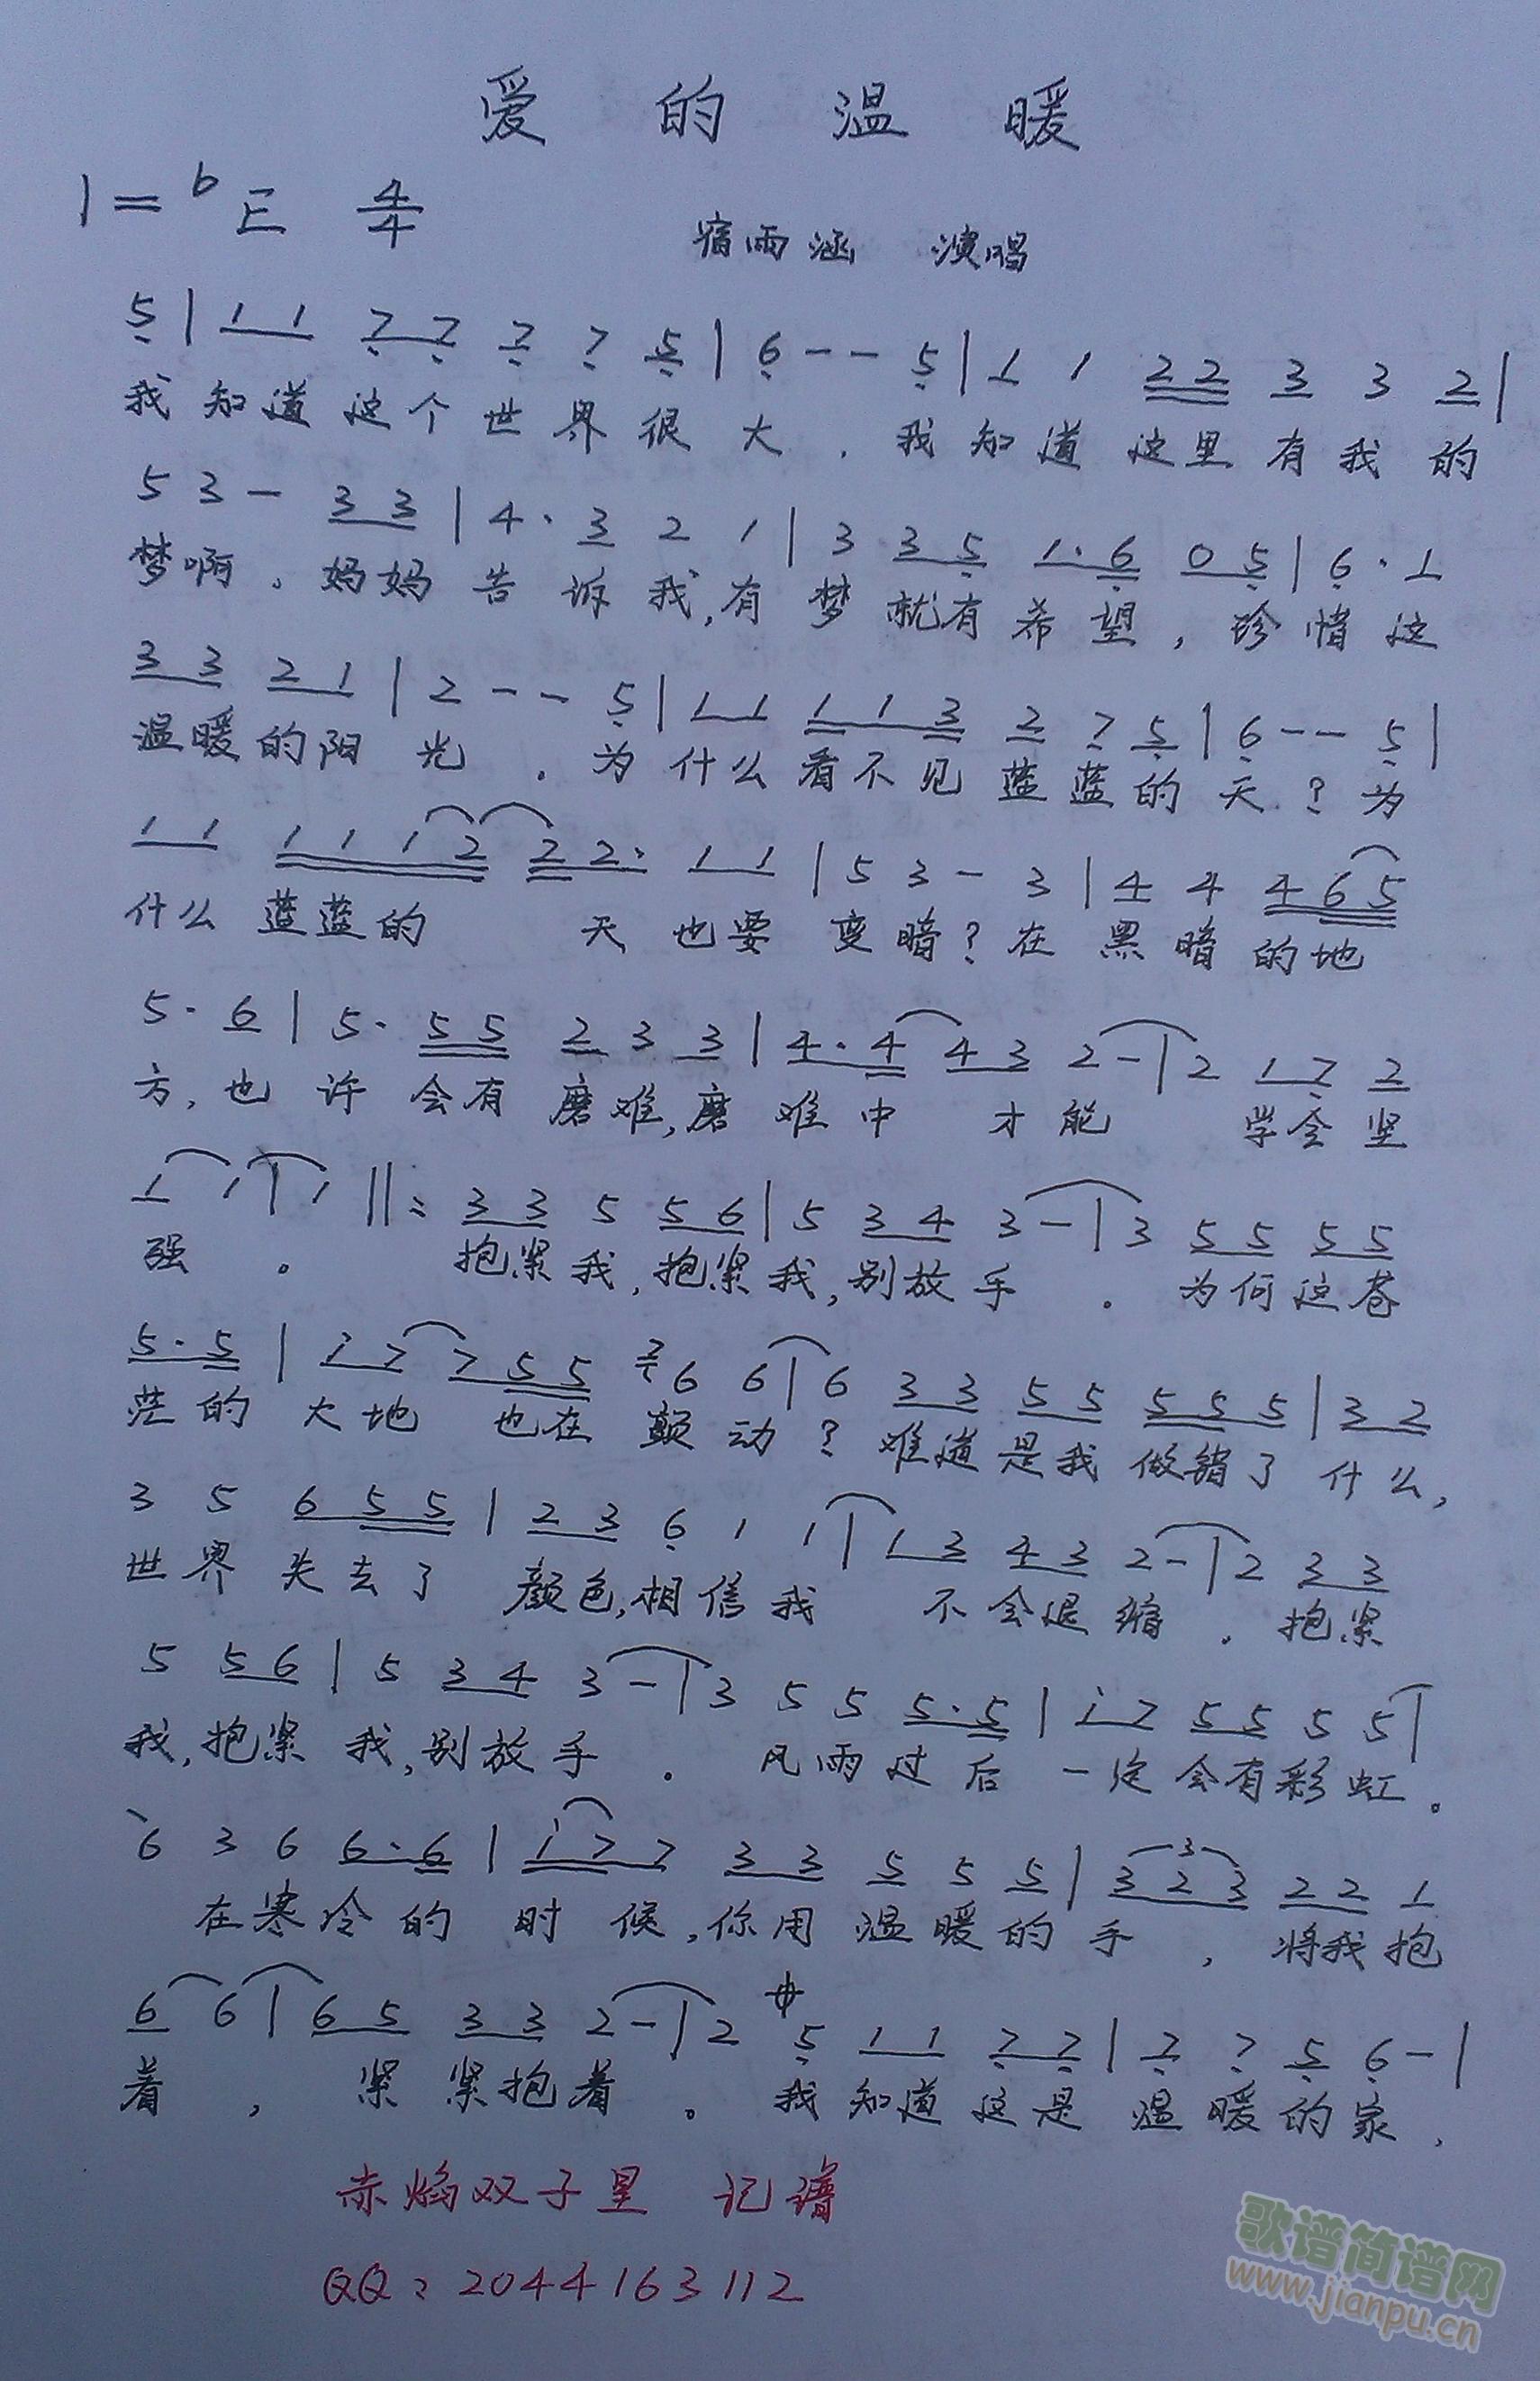 爱的温暖
1=bE 4/4
宿雨涵 演唱
5|1 1 7 7 7 7 5|6--5|1 1 2 2 3 3 2|
我知道这个世界很大.我知道这里有我的
5 3 - 3 3|4· 3 2 1|3 3 5 1·6 0 5|6·1
梦啊。妈妈告诉我,有梦就有希望,珍惜这
3 3 2 1|2--5|1 1 1 1 3 2 7 5|6--5|
温暖的阳光.为什么看不见蓝蓝的天?为
1 1 1 1 1 2 2 2· 1 1|5 3 - 3|4 4 4 6 5
什么蓝蓝的 天也要变暗?在黑暗的地
5· 6|5· 5 5 2 3 3|4·4 4 3 2-|2 1 7 2
方,也许会有磨难,磨难中 才能 学会坚
1 1|1 ‖: 3 3 5 5 6|5 3 4 3-|3 5 5 5 5
强。 抱紧我,抱紧我,别放手。为何这苍
5·5|i 7 7 5 5 7 6 6|6 3 3 5 5 5 5 5|3 2
茫的大地 也在颤动?难道是我做错了什么,
3 5 6 5 5|2 3 6 1 1|1 3 4 3 2-|2 3 3
世界失去了颜色,相信我 不会退缩.抱紧
5 5 6|5 3 4 3-|3 5 5 5·5|i 7 5 5 5 5|
我,抱紧我,别放手.风雨过后一定会有彩虹。
6 3 6 6·6|i 7 7 3 3 5 5 5|3 2 3 2 2 1
在寒冷的时候,你用温暖的手,将我抱
6 6|6 5 3 3 2-|2 5 1 1 7 7|7 7 5 6-|
着, 紧紧抱着。我知道这是温暖的家,
赤焰双子星 记谱
QQ:2044163112
歌谱简谱网
www.jianpu.cn